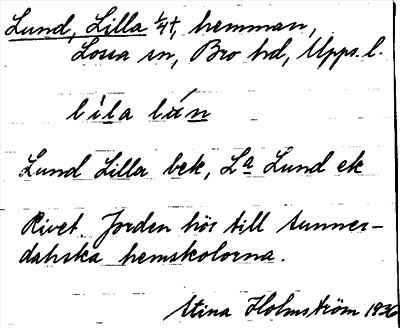 Lund, Lilla 1/4t, hemman,
Lossa sn, Bro hd, Upps. l.
lìla lún
Lund Lilla bek, La Lund ek
Rivet. Jorden hör till Sunner-
dahska hemskolorna.
Stina Holmström 1936